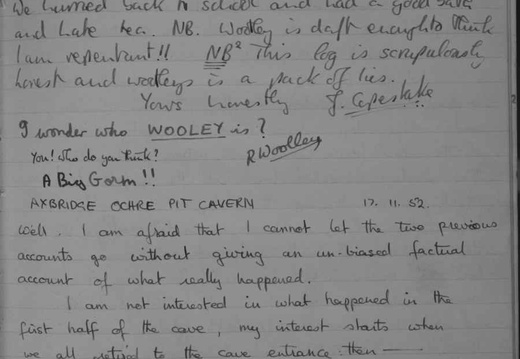 We hurried back to school and had a good
and Late tea. NB. Woolley is daft enough to think
I am repentant!! NB² This log is scrupulously
honest and woolleys is a pack of lies.
Yours honestly J. Capestake
I wonder who WOOLEY is?
You! Who do you think? R Woolley
A Big Gorm!!
AXBRIDGE OCHRE PIT CAVERN 17. 11. 52.
Well. I am afraid that I cannot let the two previous
accounts go without giving an un-biased factual
account of what really happened.
I am not interested in what happened in the
first half of the cave, my interest starts when
we all retired to the cave entrance then —